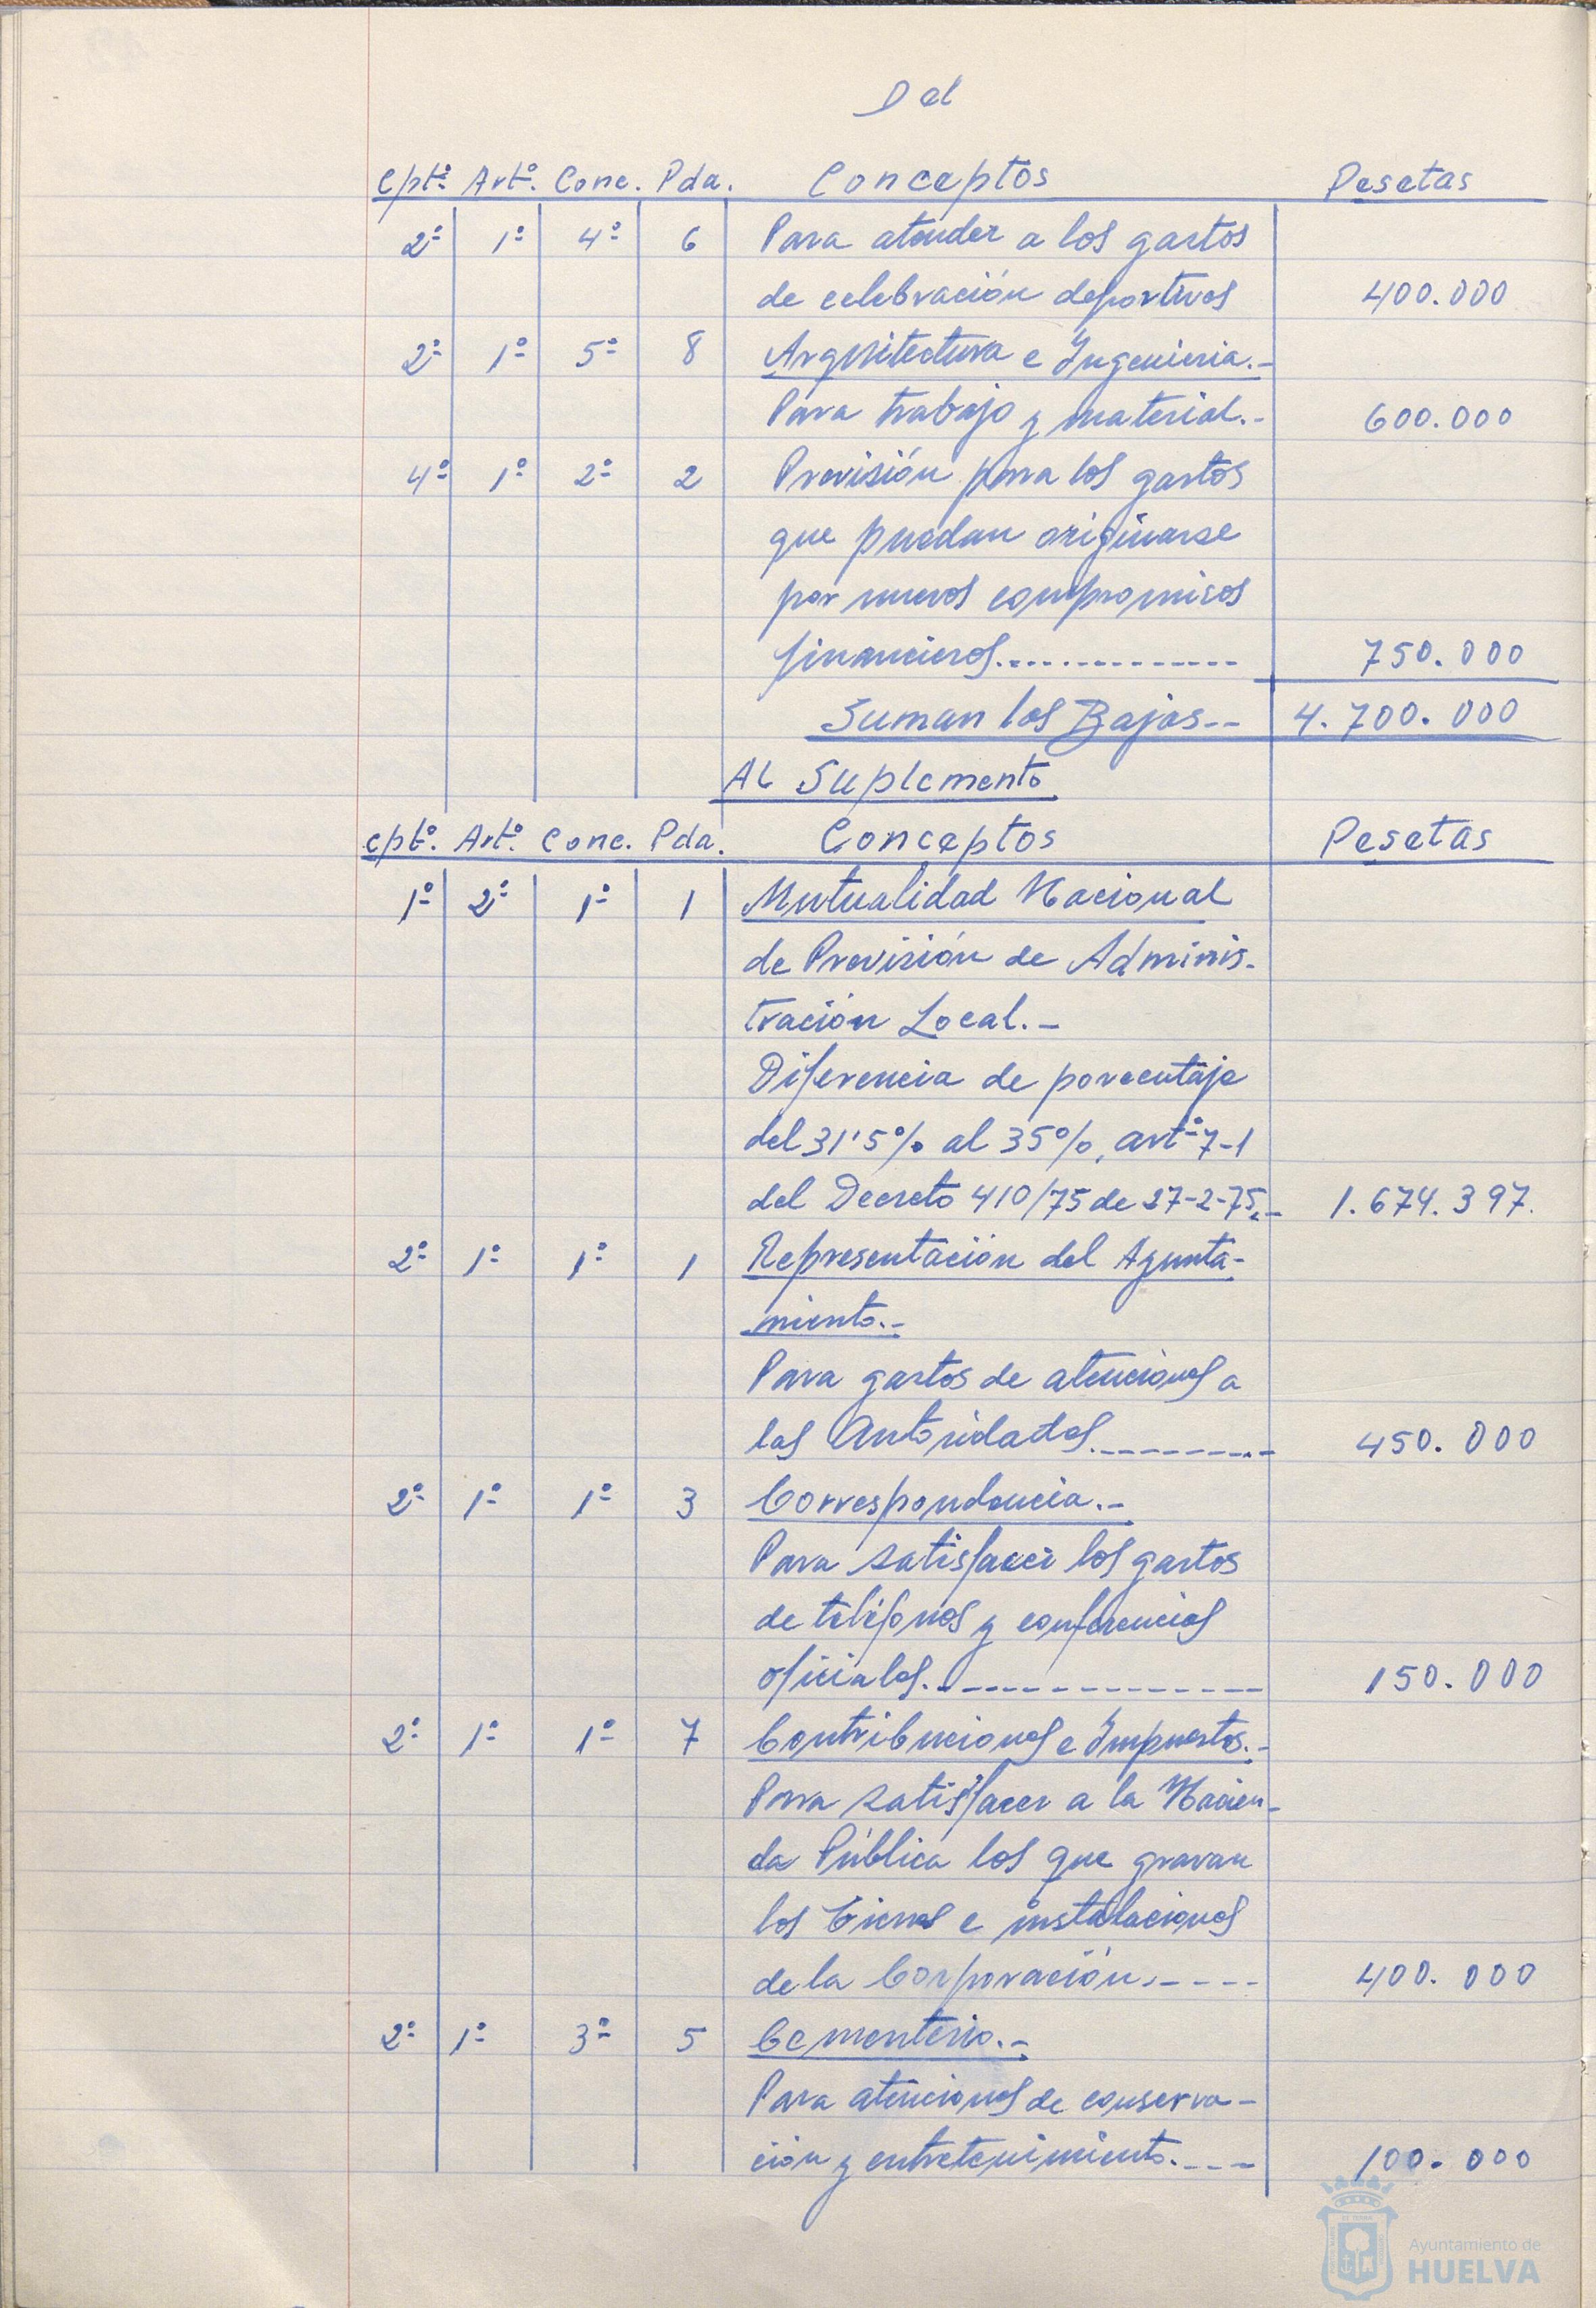 Del
Cptº. Artº. Conc. Pda. Conceptos Pesetas
2º 1º 4º 6 Para atender a los gastos
de celebración deportivos 400.000
2º 1º 5º 8 Arquitectura e Ingenieria.-
Para trabajo y material.- 600.000
4º 1º 2º 2 Previsión para los gastos
que puedan originarse
por nuevos compromisos
financieros.............. 750.000
Suman las Bajas-- 4.700.000
Al Suplemento
Cptº. Artº. Conc. Pda. Conceptos Pesetas
1º 2º 1º 1 Mutualidad Nacional
de Previsión de Adminis-
tración Local.-
Diferencia de porcentaje
del 31'5% al 35%, artº 7-1
del Decreto 410/75 de 27-2-75.- 1.674.397.
2º 1º 1º 1 Representación del Ayunta-
miento.-
Para gastos de atenciones a
las Autoridades.--------- 450.000
2º 1º 1º 3 Correspondencia.-
Para satisfacer los gastos
de teléfonos y conferencias
oficiales.-------------- 150.000
2º 1º 1º 7 Contribuciones e Impuestos.-
Para satisfacer a la Hacien-
da Pública los que gravan
los bienes e instalaciones
de la Corporación.---- 400.000
2º 1º 3º 5 Cementerio.-
Para atenciones de conserva-
ción y entretenimiento.--- 100.000
Ayuntamiento de
HUELVA